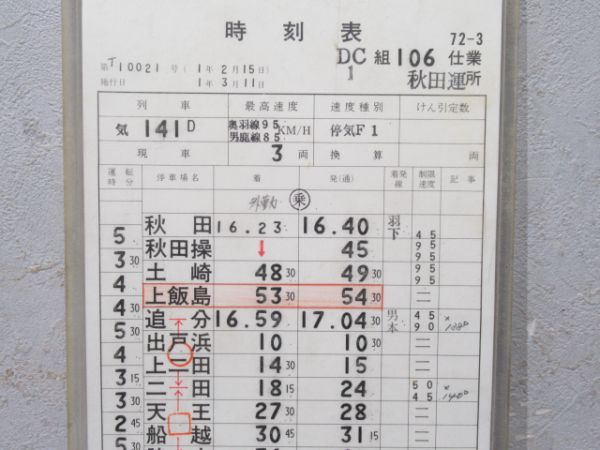 時刻表
72-3
DC1組106仕業
第T10021号(1年2月15日)
施行日 1年3月11日
秋田運所
列車 最高速度 速度種別 けん引定数
気141D 奥羽線95 男鹿線85 KM/H 停気F1
現車 3両 換算 両
運転時分 停車場名 着 発(通) 着発線 制限速度 記事
外勤 乗
秋田 16.23 16.40 羽下
5 45
秋田操 ↓ 45 95
3 30 95
土崎 48 30 49 30 95
4 95
上飯島 53 30 54 30 二
4 30
追分 16.59 17.04 30 男本 45 90
5 30
出戸浜 10 10 30 二
4
上二田 14 30 15 二
3 15
二田 18 15 24 50 45
3
天王 27 30 28 二
2 45
船越 30 45 31 15 二
5